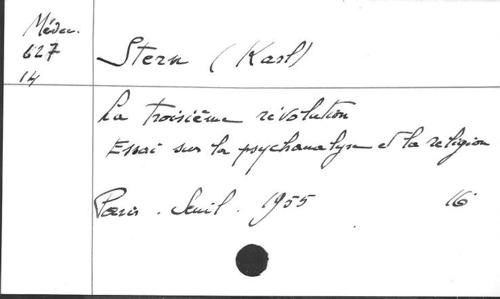 Médec.
627
14
Stern (Karl)
La troisième révolution
Essai sur la psychanalyse et la religion
Paris. Seuil. 1955 16